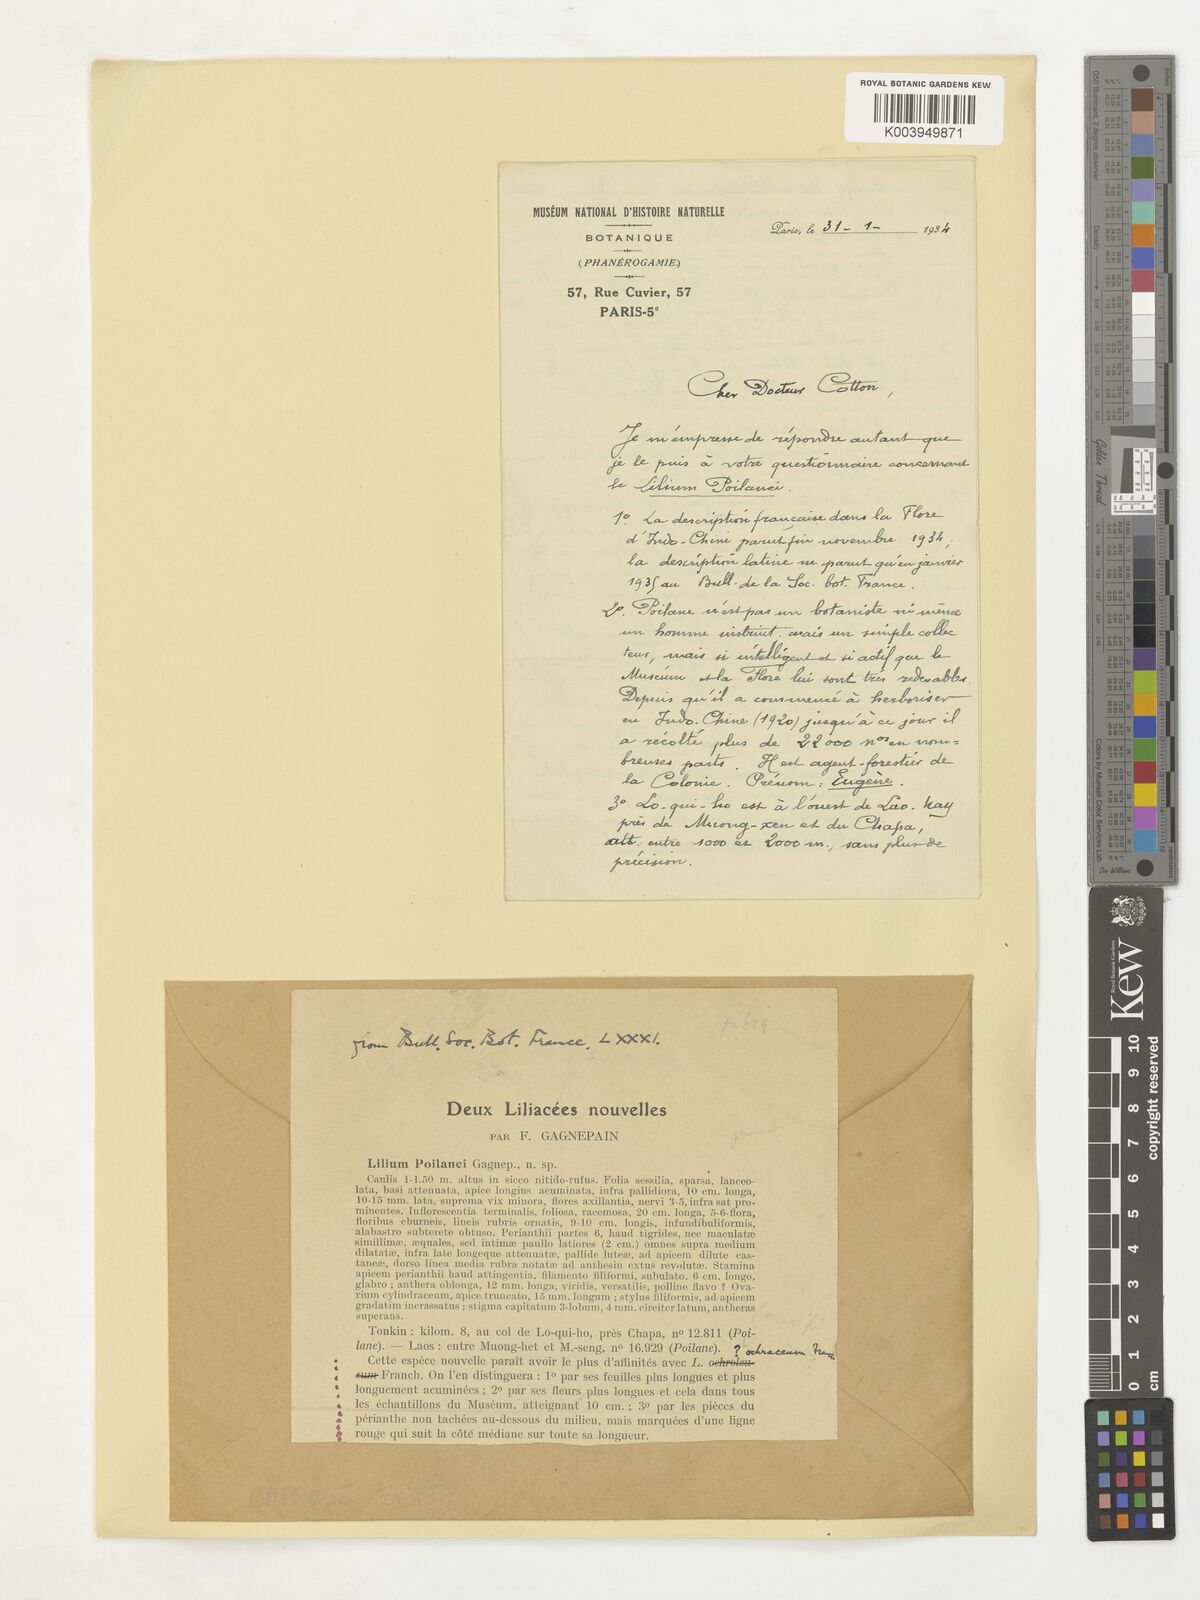 ROYAL BOTANIC GARDENS KEW
K003949871
MUSÉUM NATIONAL D'HISTOIRE NATURELLE
BOTANIQUE
(PHANÉROGAMIE)
57, Rue Cuvier, 57
PARIS-5e
Paris, le 31 - 1 - 1934
Cher Docteur Cotton,
Je m'empresse de répondre autant que
je le puis à votre questionnaire concernant
le Lilium Poilanei.
1o. La description française dans la Flore
d'Indo-Chine parut fin novembre 1934;
la description latine ne parut qu'en janvier
1935 au Bull. de la Soc. bot. France.
2o. Poilane n'est pas un botaniste ni même
un homme instruit. mais un simple collec
teur, mais si intelligent et si actif que le
Muséum et la Flore lui sont très redevables.
Depuis qu'il a commencé à herboriser
en Indo-Chine (1920) jusqu'à ce jour il
a récolté plus de 22000 nos en nom=
breuses parts. Il est agent-forestier de
la Colonie. Prénom: Eugène.
3o Lo-qui-ho est à l'ouest de Lao-kay
près de Muong-xen et du Chapa,
alt. entre 1000 et 2000 m., sans plus de
précision.
from Bull. Soc. Bot. France. LXXXI.
Deux Liliacées nouvelles
PAR F. GAGNEPAIN
Lilium Poilanei Gagnep., n. sp.
Caulis 1-1.50 m. altus in sicco nitido-rufus. Folia sessilia, sparsa, lanceo-
lata, basi attenuata, apice longius acuminata, infra pallidiora, 10 cm. longa,
10-15 mm. lata, suprema vix minora, flores axillantia, nervi 3-5, infra sat pro-
minentes. Inflorescentia terminalis, foliosa, racemosa, 20 cm. longa, 5-6-flora,
floribus eburneis, lineis rubris ornatis, 9-10 cm. longis, infundibuliformis,
alabastro subterete obtuso. Perianthii partes 6, haud tigrides, nec maculatæ
simillimæ, æquales, sed intimæ paullo latiores (2 cm.) omnes supra medium
dilatatæ, infra late longeque attenuatæ, pallide luteæ, ad apicem dilute cas-
taneæ, dorso linea media rubra notatæ ad anthesin extus revolutæ. Stamina
apicem perianthii haud attingentia, filamento filiformi, subulato, 6 cm. longo,
glabro ; anthera oblonga, 12 mm. longa, viridis, versatilis, polline flavo ? Ova-
rium cylindraceum, apice truncato, 15 mm. longum ; stylus filiformis, ad apicem
gradatim incrassatus ; stigma capitatum 3-lobum, 4 mm. circiter latum, antheras
superans.
Tonkin : kilom. 8, au col de Lo-qui-ho, près Chapa, no 12.811 (Poi-
lane). — Laos : entre Muong-het et M.-seng, no 16.929 (Poilane). ? ochraceum Franch
Cette espèce nouvelle paraît avoir le plus d'affinités avec L. ochroleu-
cum Franch. On l'en distinguera : 1o par ses feuilles plus longues et plus
longuement acuminées ; 2o par ses fleurs plus longues et cela dans tous
les échantillons du Muséum, atteignant 10 cm. ; 3o par les pièces du
périanthe non tachées au-dessous du milieu, mais marquées d'une ligne
rouge qui suit la côté médiane sur toute sa longueur.
Golden Thread
Colors by Munsell Color Services Lab
Don Williams
Royal Botanic Gardens
Kew
0 1 2 3 4 5 6 7 8 9 10
cm
copyright reserved